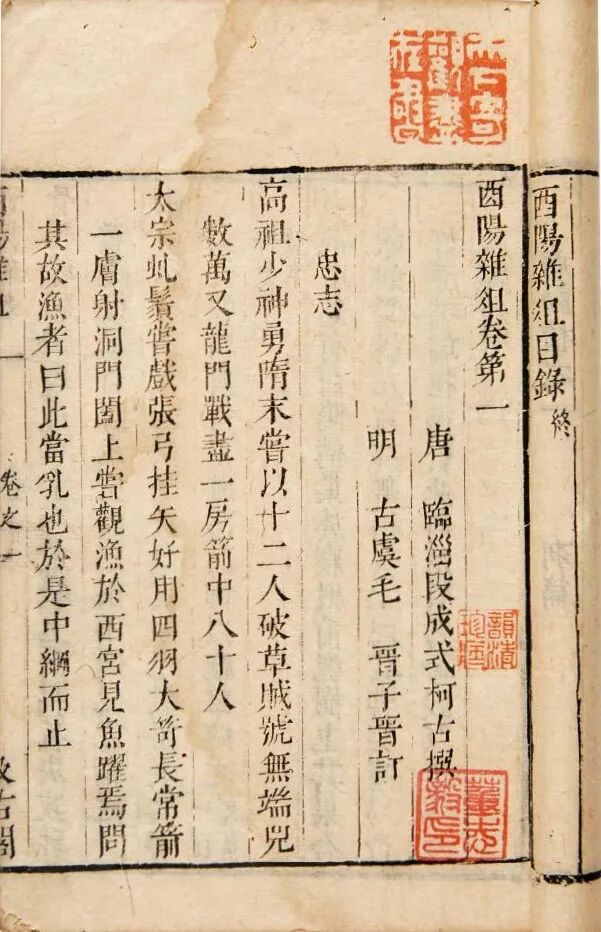 酉陽雜俎目錄終
酉陽雜俎卷第一
唐 臨淄段成式柯古撰
明 古虞毛 晉子晉訂
忠志
高祖少神勇隋末嘗以十二人破草賊號無端兒
數萬又龍門戰盡一房箭中八十人
太宗虬鬚嘗戲張弓挂矢好用四羽大笴長常箭
一膚射洞門闔上嘗觀漁於西宮見魚躍焉問
其故漁者曰此當乳也於是中網而止
酉陽雜俎
卷之一
汲古閣